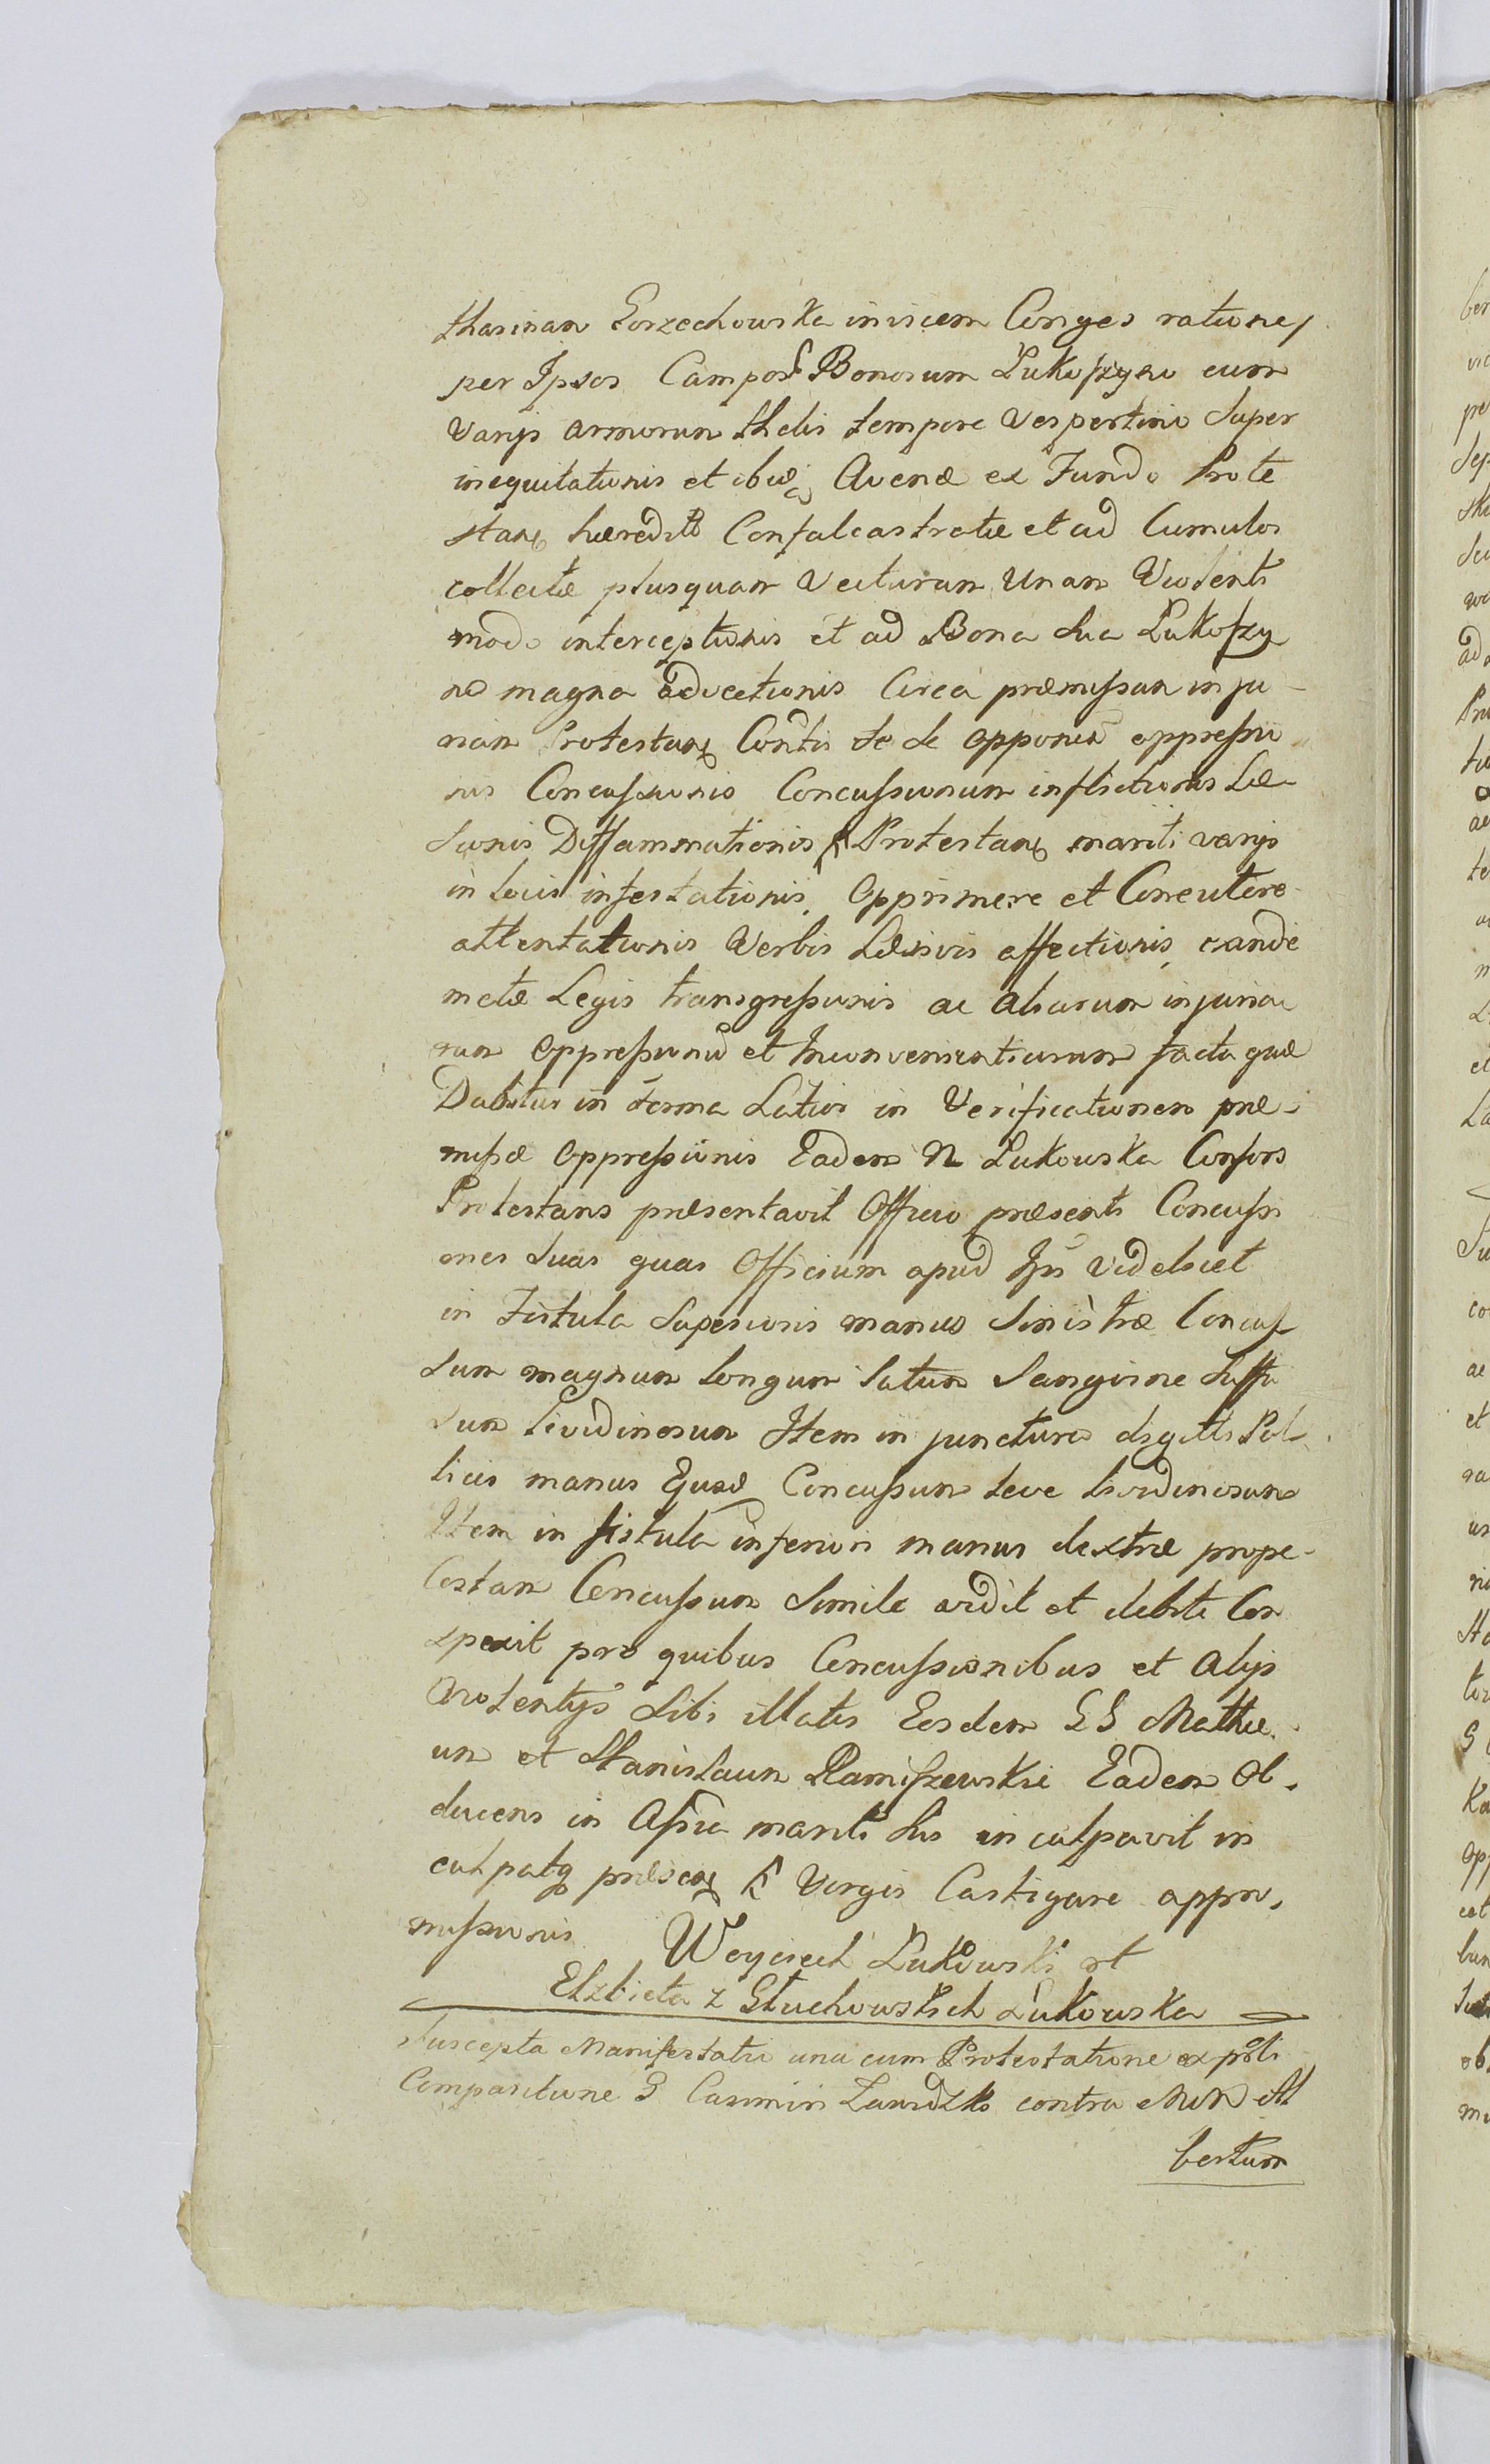 tharinam Gorzechowska invicem Conjges ratione,
per Ipsos Campos Bonorum Łukoszyno cum
varijs armorum thelis tempore vespertino super
inequitationis et ibid Avenæ ex Fundo Prote
stan hæredit Confalcastratæ et ad Cumulos
collectæ plusquam Vecturam Unam Violenti
modo interceptionis et ad Bona sua Łukoszy
no magna advectionis Circa præmissam inju-
riam Protestan Contis se se opponen oppressio
nis Concussionis Concussionum inflictionis Læ-
sionis Diffammationis Protestan mariti varijs
in locis infestationis, Opprimere et Concutere
attentationis Verbis Læsivis affectionis, eande
metæ Legis transgressionis ac aliarum injuria
rum Oppressionu et Inconvenientiarum facta quæ
Dabitur in forma Latior in Verificationem præ-
missæ Oppressionis Eadem N Łukowska Consors
Protestans præsentavit Officio præsenti Concussi
ones suas quas Officium apud Ips videlicet
in Fistula Superioris manus Sinistræ Concus
sum magnum longum latum Sangvine suffu
sum lividinosum Item in junctura digiti Pol-
licis manus Ejusd Concussum leve lividinosum
Item in fistula inferiori manus dextræ prope
Costam Concussum Simile vidit et debite Con
spexit pro quibus Concussionibus et alijs
violentijs sibi illatis Eosdem GG Mathæ-
um et Stanislaum Ramiszewskie Eadem Ob-
ducens in Assia mariti sui inculpavit in
culpatq præsen Virgis Castigare appro-
missionis Woyciech Łukowski et
Elzbieta z Głuchowskich Łukowska
Suscepta Manifestatio una cum Protestatione ex psti
Comparitione G Casimiri Zawidzki contra MM Al
bertum